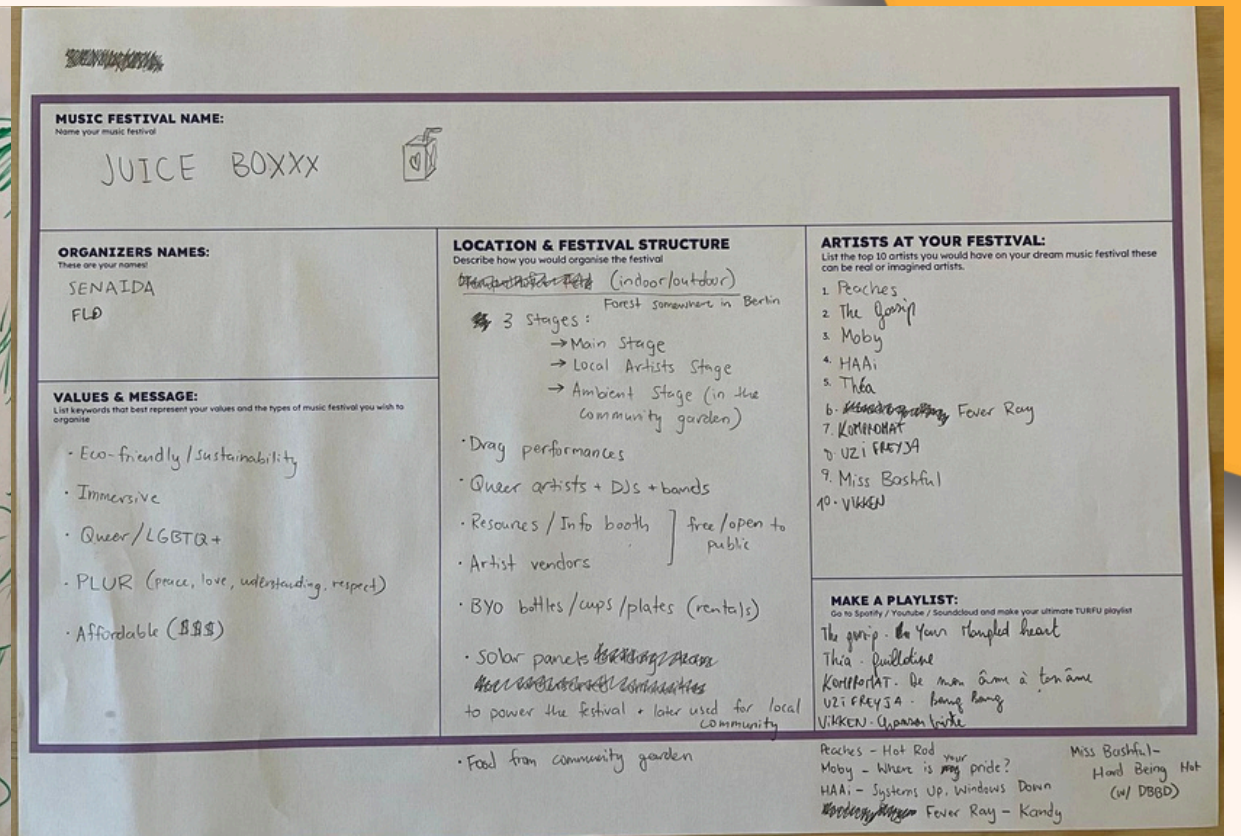 MUSIC FESTIVAL NAME:
Name your music festival
JUICE BOXXX
ORGANIZERS NAMES:
These are your names!
SENAIDA
FLO
VALUES & MESSAGE:
List keywords that best represent your values and the types of music festival you wish to
organise
· Eco-friendly/sustainability
· Immersive
· Queer/LGBTQ+
· PLUR (peace, love, understanding, respect)
· Affordable ($$$)
LOCATION & FESTIVAL STRUCTURE
Describe how you would organise the festival
(indoor/outdoor)
Forest somewhere in Berlin
3 Stages:
→ Main Stage
→ Local Artists Stage
→ Ambient Stage (in the
community garden)
· Drag performances
· Queer artists + DJs + bands
· Resources / Info booth
· Artist vendors
free/open to
public
· BYO bottles/cups/plates (rentals)
· Solar panels
to power the festival + later used for local
community
· Food from community garden
ARTISTS AT YOUR FESTIVAL:
List the top 10 artists you would have on your dream music festival these
can be real or imagined artists.
1. Peaches
2. The Gossip
3. Moby
4. HAAi
5. Théa
6. Fever Ray
7. KOMPROMAT
8. UZI FREYJA
9. Miss Bashful
10. VIKKEN
MAKE A PLAYLIST:
Go to Spotify / Youtube / Soundcloud and make your ultimate TURFU playlist
The gossip. Your Mangled heart
Théa. Guillotine
KOMPROMAT. De mon âme à ton âme
UZI FREYJA. Bang Bang
VIKKEN. Chanson triste
Peaches - Hot Rod
Moby - Where is your pride?
HAAi - Systems Up, Windows Down
Fever Ray - Kandy
Miss Bashful -
Hard Being Hot
(w/ DBBD)